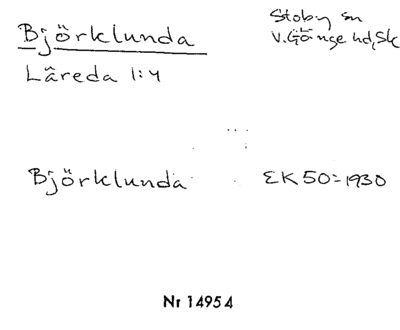 Björklunda
Stoby sn
V.Göinge hd, Sk
Låreda 1:4
Björklunda
EK 50=1930
Nr 14954